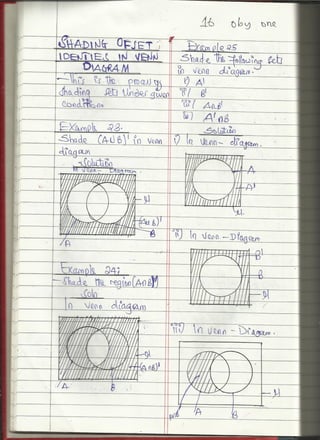 16 oby one
SHADING OF SET
IDENTITIES IN VENN
DIAGRAM
- This is the process of
shading sets Under given
condition
Example 23:
Shade (AUB)' in venn
diagram
solution
In venn - Diagram
μ
(AUB)'
B
A
Example 24:
Shade the region (AnB)'
Soln
In venn diagram
μ
(AnB)'
A
B
Example 25
Shade the following sets
in venn diagram.
i) A'
ii) B'
iii) AnB'
iv) A'nB
Solution
i) In Venn - diagram.
A
A'
μ
ii) In venn - Diagram
B'
B
μ
iii) In venn - Diagram.
μ
AnB'
A
B